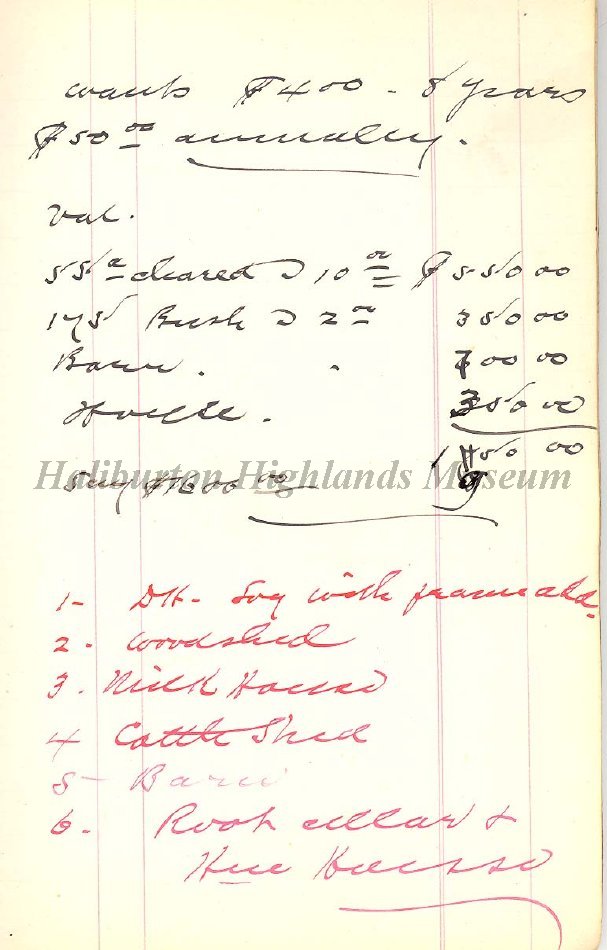 wants $400 - 8 years
$50 00 annually.
Val.
55 a cleared @ 10 00 $ 550 00
175 Bush @ 2 00 350 00
Barn . . 00 00
House . 350 00
50 00
Haliburton Highlands Museum
Say $1600 00
1- DH - Log with frame add.
2. woodshed
3. Milk House
4 Cattle Shed
5- Barn
6. Root cellar &
Hen House